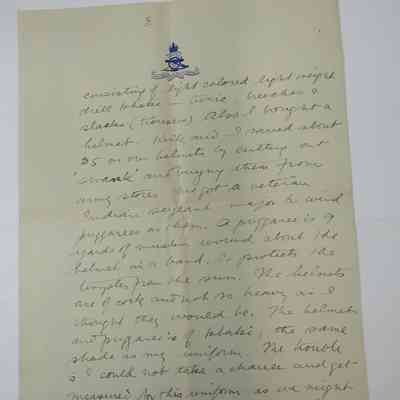 8
consisting of light colored light weight
drill khaki — tunic, breeches &
slacks (trousers) Also I bought a
helmet. Kirk and I saved about
$5 on our helmets by cutting out
'swank' and buying them from
army stores and got a veteran
Indian sergeant-major to wind
puggarees on them. A puggaree is 9
yards of muslin wound about the
helmet in a band. It protects the
temples from the sun. The helmets
are of cork and not so heavy as I
thought they would be. The helmets
and puggarees is of khaki, the same
shade as my uniform. The trouble
is I could not take a chance and get
measured for this uniform as we might